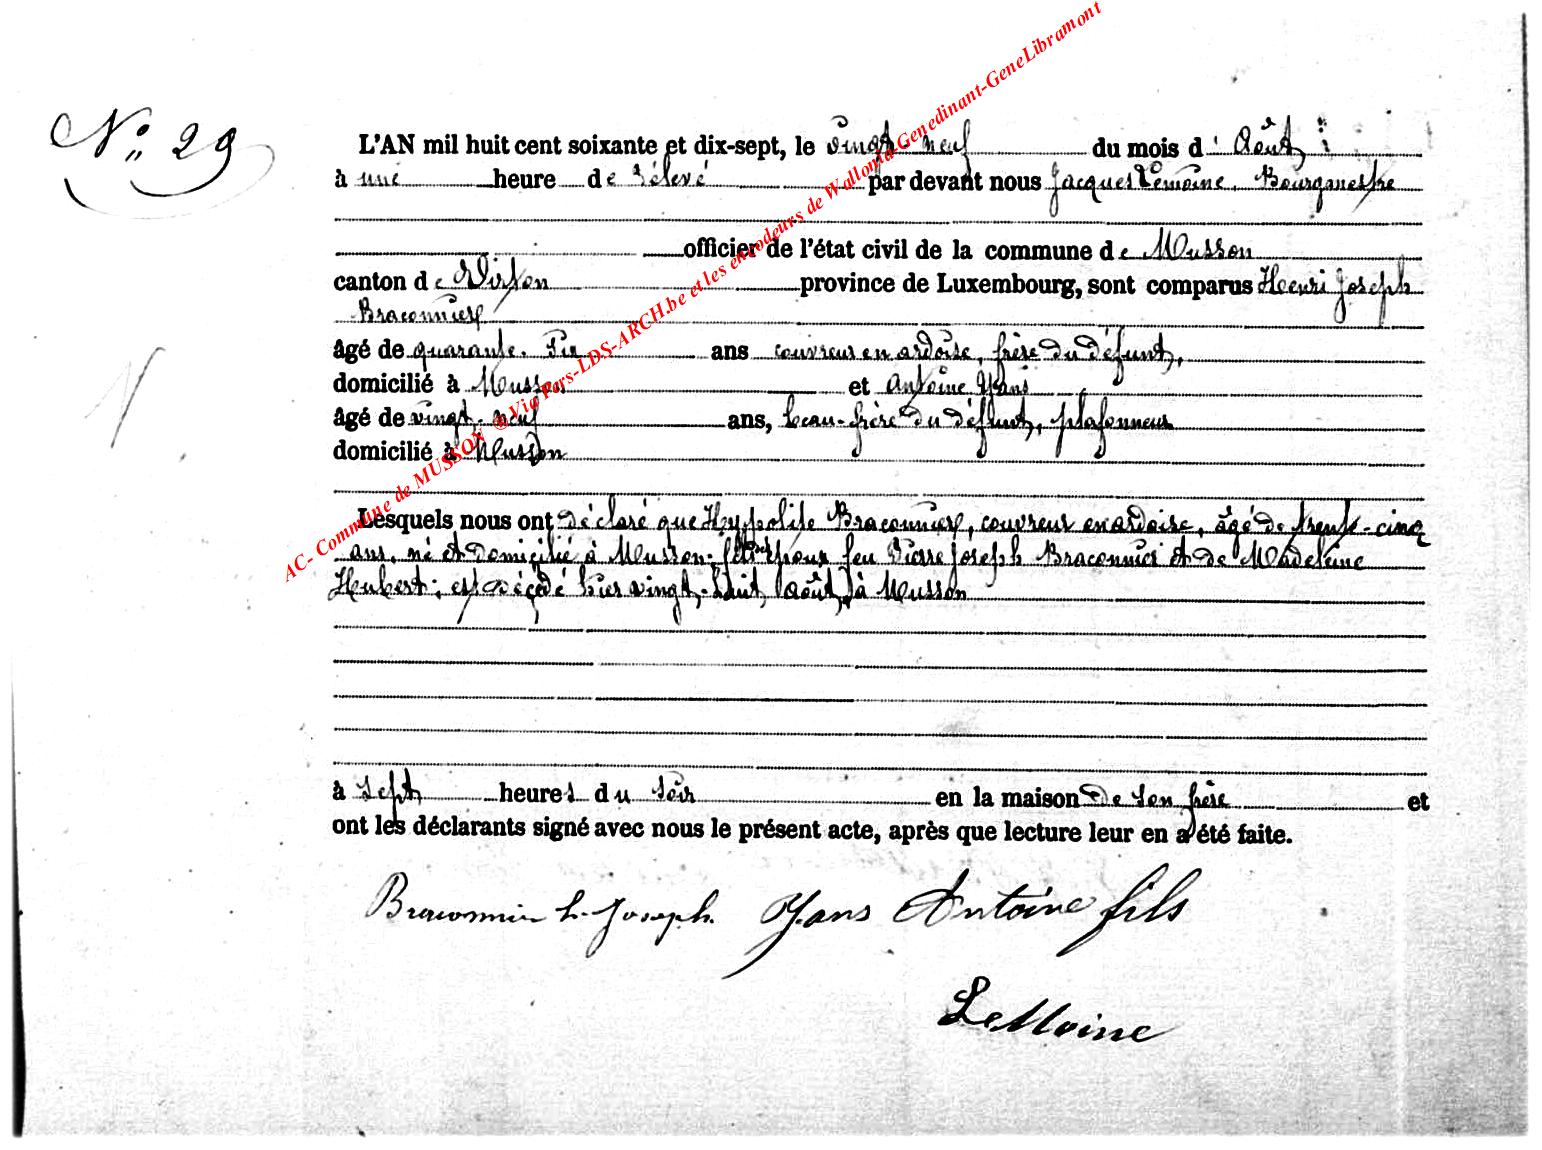 N° 29
L'AN mil huit cent soixante et dix-sept, le vingt neuf du mois d' Août
à une heure de relevé par devant nous Jacques Lemoine, Bourgmestre
officier de l'état civil de la commune de Musson
canton de Virton province de Luxembourg, sont comparus Henri Joseph
Braconnier
âgé de quarante-six ans couvreur en ardoise, frère du défunt,
domicilié à Musson et Antoine Yans
âgé de vingt-neuf ans, beau-frère du défunt, plafonneur
domicilié à Musson
Lesquels nous ont déclaré que Hyppolite Braconnier, couvreur en ardoise, âgé de trente-cinq
ans, né et domicilié à Musson; fils des époux feu Pierre Joseph Braconnier et de Madeleine
Hubert; est décédé hier vingt-huit Août, à Musson
à sept heures du soir en la maison de son frère et
ont les déclarants signé avec nous le présent acte, après que lecture leur en a été faite.
Braconnier h. Joseph. Yans Antoine fils
LeMoine
AC- Commune de MUSSON @ Via Pars-LDS-ARCH.be et les encodeurs de Wallonia-Genedinant-GeneLibramont